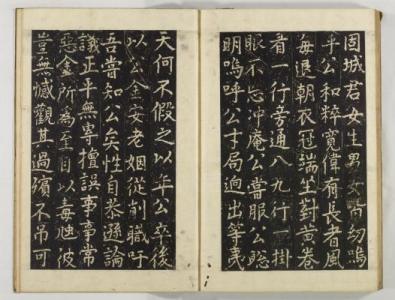 固城君女生男女皆幼嗚
乎公和粹寬偉有長者風
每退朝衣冠端坐對黃卷
看一行苦通八九行一掛
眼不忘冲庵公嘗服公聡
明嗚呼公才局逈出等夷
天何不假之以年公卒後
以公金安老姻從削職吁
吾嘗知公矣性自恭遜論
議正平無喜擅誤事事常
惡金所為至目以毒虺彼
豈無憾觀其過殯不弔可